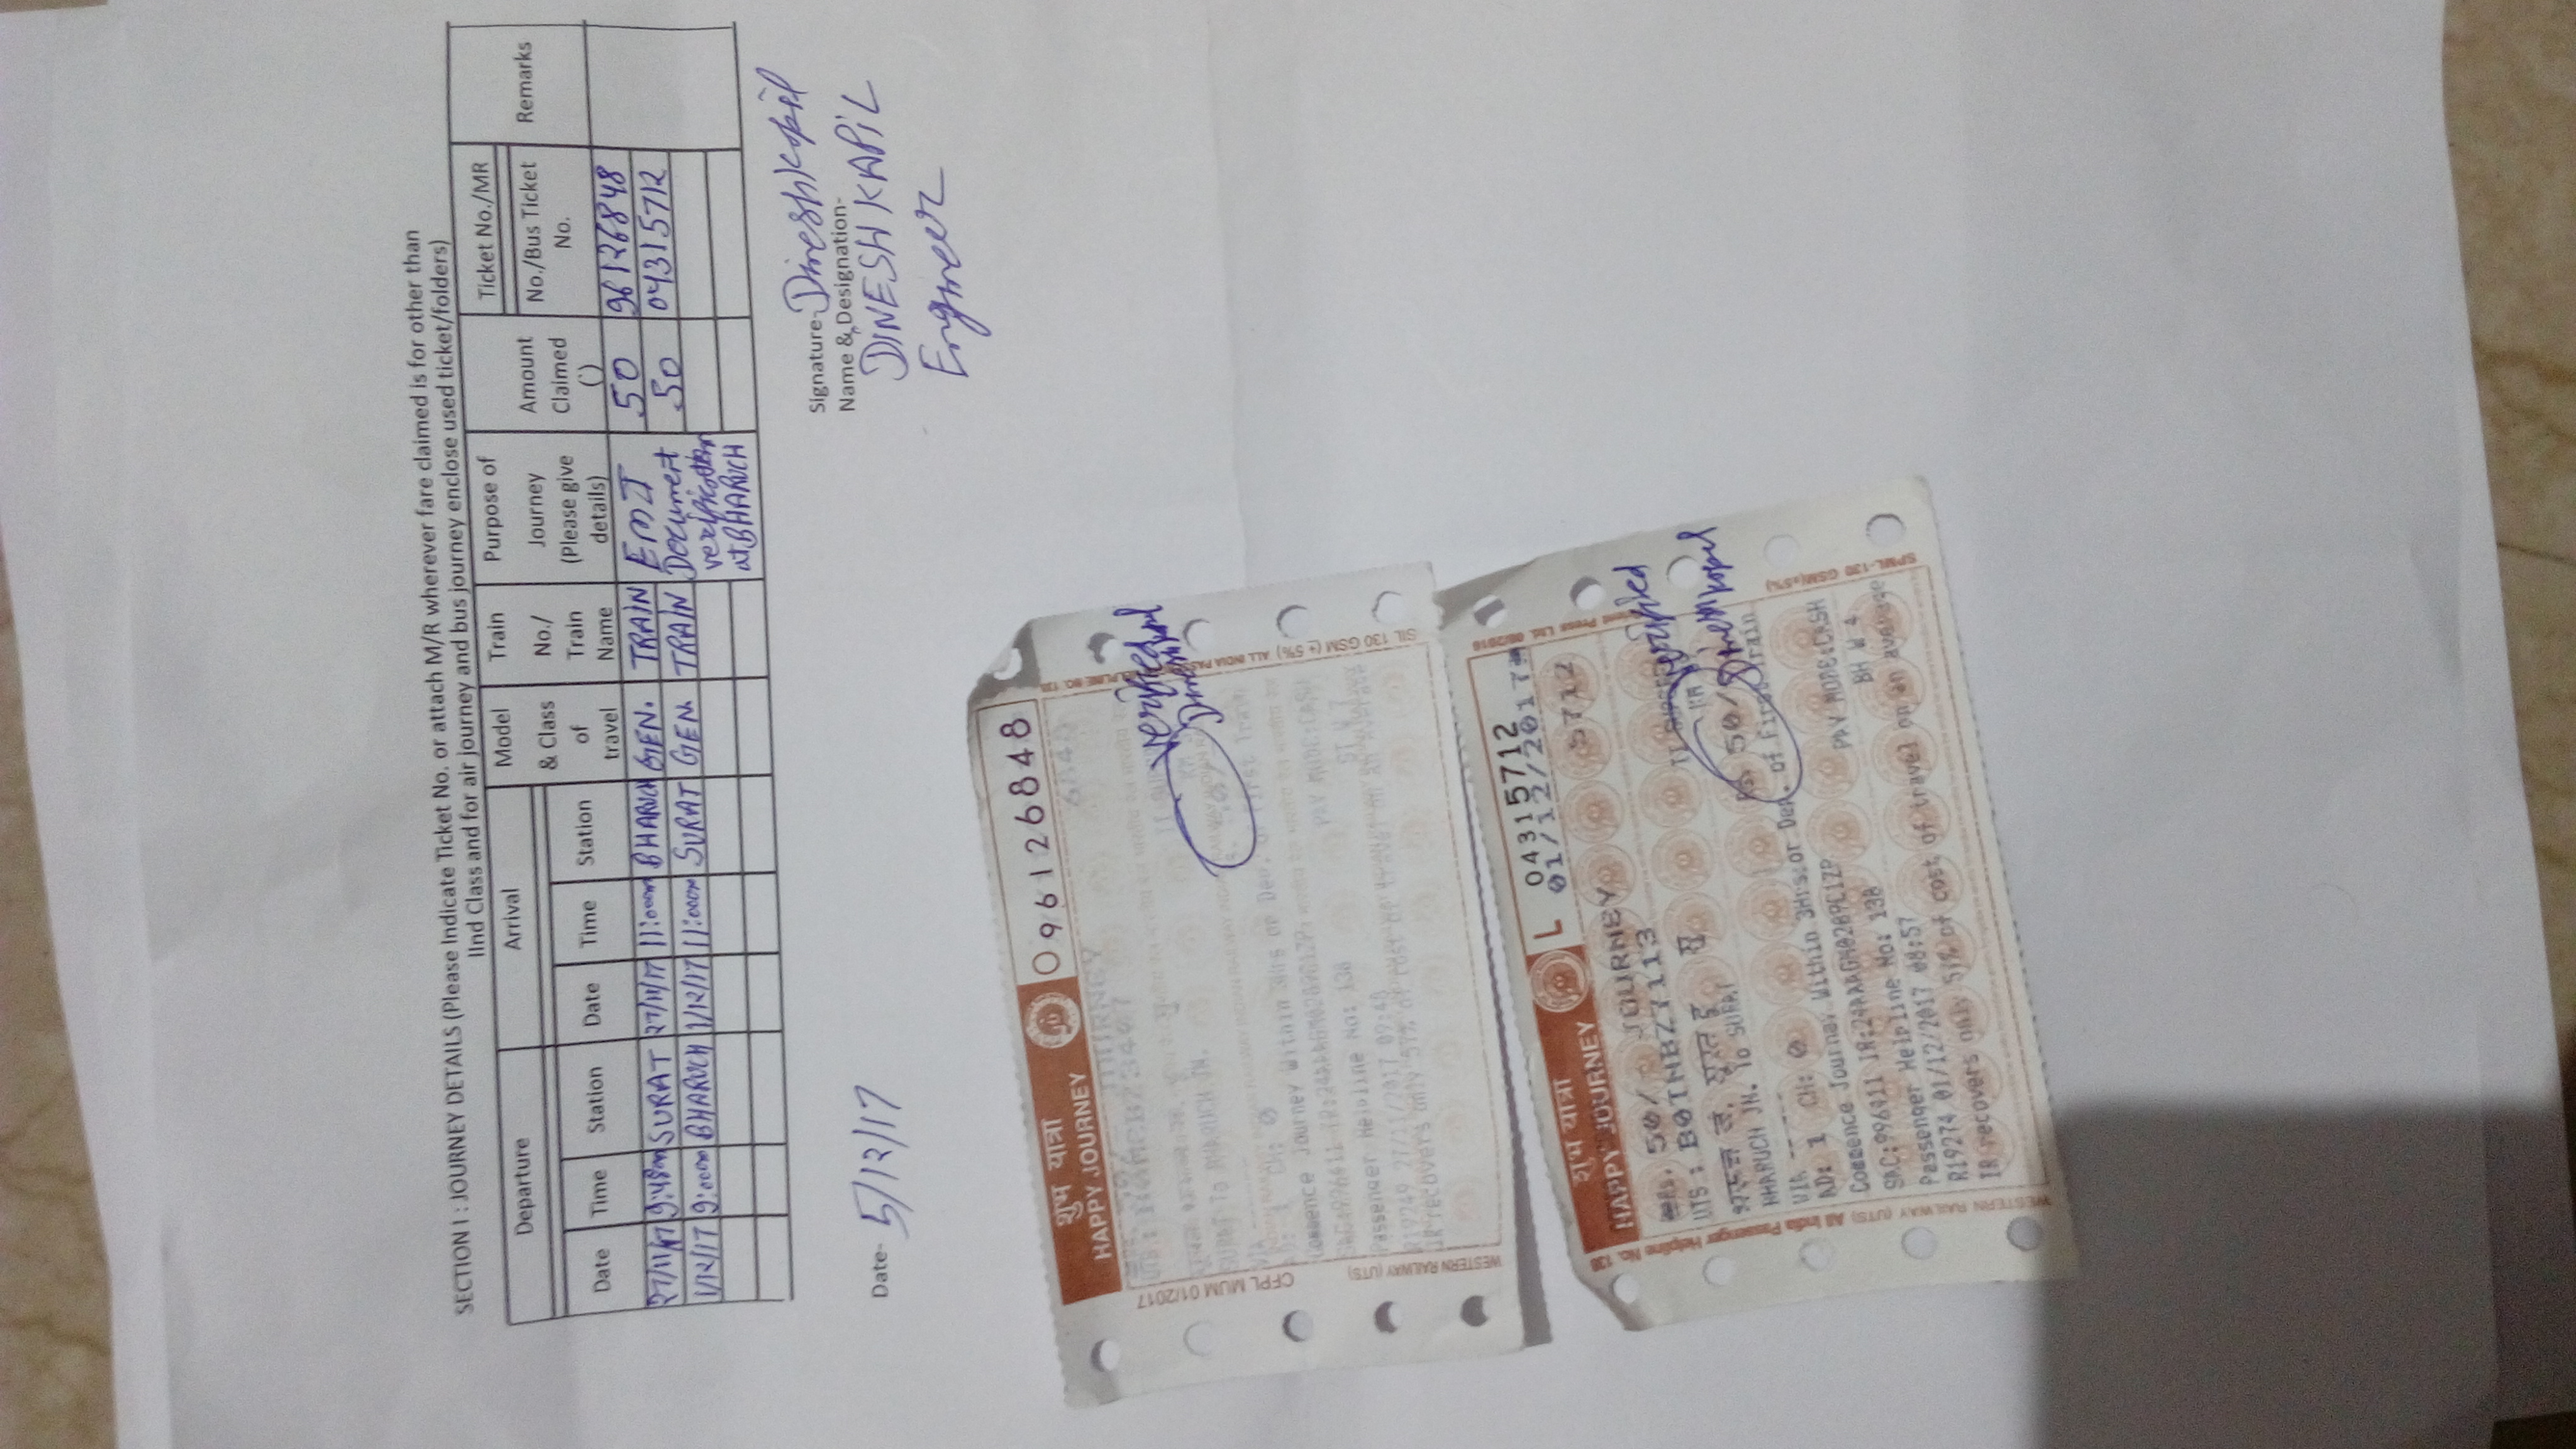 SECTION I : JOURNEY DETAILS (Please Indicate Ticket No. or attach M/R wherever fare claimed is for other than
IInd Class and for air journey and bus journey enclose used ticket/folders)
Departure Arrival Model & Class of travel Train No./ Train Name Purpose of Journey (Please give details) Amount Claimed () Ticket No./MR No./Bus Ticket No. Remarks
Date Time Station Date Time Station
27/11/17 9:48am SURAT 27/11/17 11:00am BHARUCH GEN. TRAIN EMI 50 96126848
1/12/17 9:00am BHARUCH 1/12/17 11:00am SURAT GEN. TRAIN Document 50 04315712
verification
at BHARUCH
Date- 5/12/17
Signature- Dineshkapil
Name & Designation-
DINESH KAPIL
Engineer
शुभ यात्रा
HAPPY JOURNEY
096126848
verified
SURAT To BHARUCH JN.
Commence Journey Within 3Hrs or Dep. of First Train
Passenger Helpline No: 138
R19249 27/11/2017 09:48
IR recovers only 57% of cost of travel on an average
WESTERN RAILWAY (UTS)
CFPL MUM 01/2017
SIL 130 GSM (± 5%)
शुभ यात्रा
HAPPY JOURNEY
L 04315712
01/12/2017
50/ JOURNEY 5712
UTS: B0INBZ7113
verified
BHARUCH JN. To SURAT
50/
Dineshkapil
VIA ----
AD: 1 CH: 0
Commence Journey Within 3Hrs or Dep. of First Train
SAC:996411 IR:24AAAGM0289C1ZP PAY MODE:CASH
Passenger Helpline No: 138
R19274 01/12/2017 08:57 BH W 4
IR recovers only 57% of cost of travel on an average
WESTERN RAILWAY (UTS) All India Passenger Helpline No. 138
SPML-130 GSM(±5%)